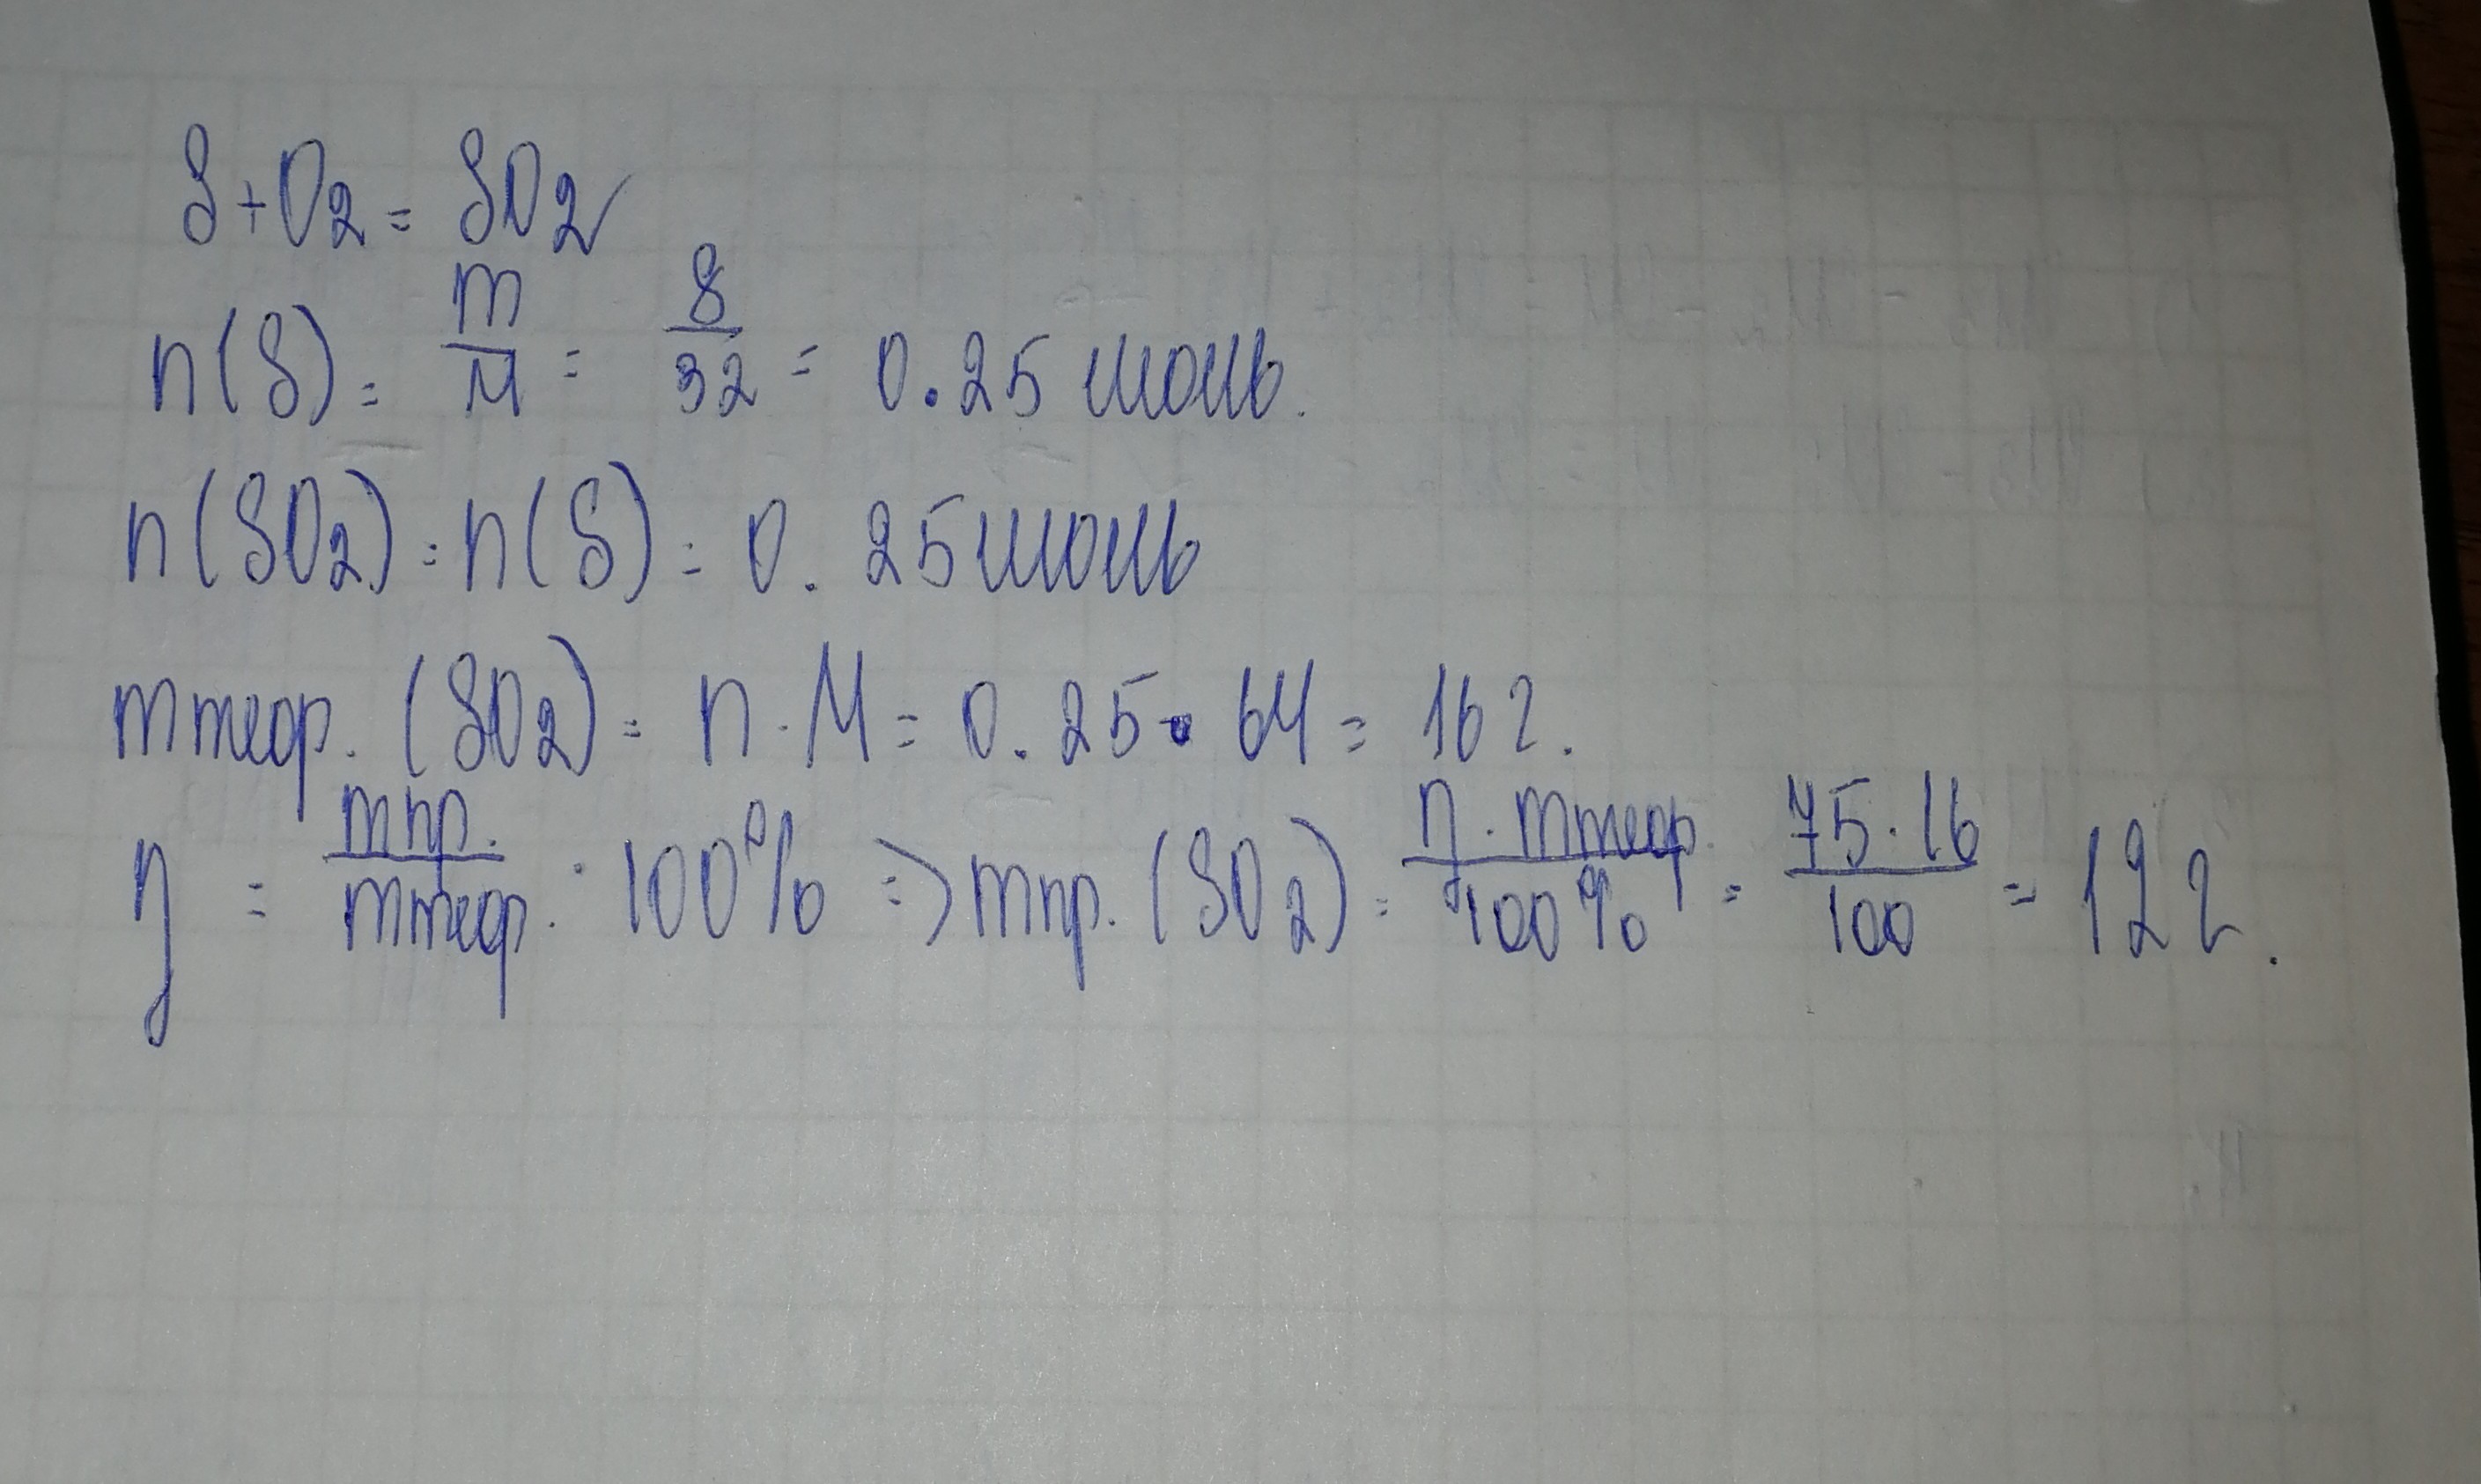 S+O₂ = SO₂
n(S) = m/M = 8/32 = 0.25 моль.
n(SO₂) = n(S) = 0.25 моль
mтеор. (SO₂) = n · M = 0.25 · 64 = 16 г.
η = mпр./mтеор. · 100% => mпр. (SO₂) = η · mтеор./100% = 75 · 16/100 = 12 г.